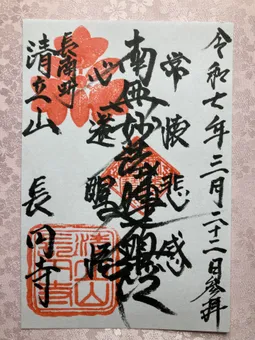 令和七年三月二十二日参拝
常懐悲感
南無妙法蓮華経
心遂醒悟
長潮町
清立山
長円寺